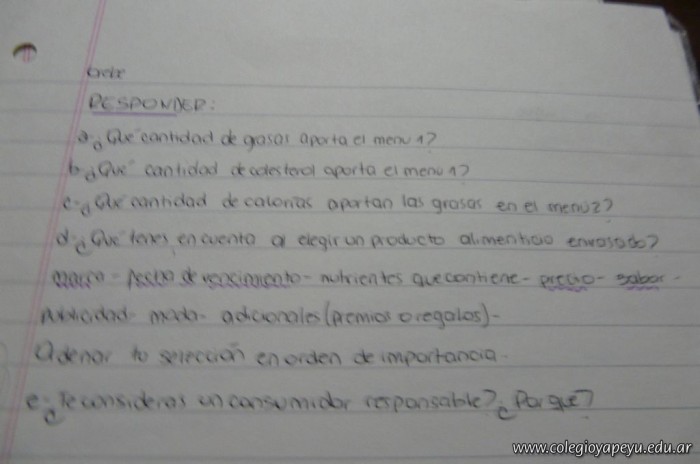 RESPONDER:
a-¿Que cantidad de grasas aporta el menu 1?
b-¿Que cantidad de colesterol aporta el menu 1?
c-¿Que cantidad de calorías aportan las grasas en el menu 2?
d-¿Que tenes en cuenta al elegir un producto alimenticio envasado?
marca - fecha de vencimiento - nutrientes que contiene - precio - sabor -
publicidad - moda - adicionales (premios o regalos) -
Ordenar tu selección en orden de importancia -
e-¿Te consideras un consumidor responsable? ¿Por qué?
www.colegioyapeyu.edu.ar